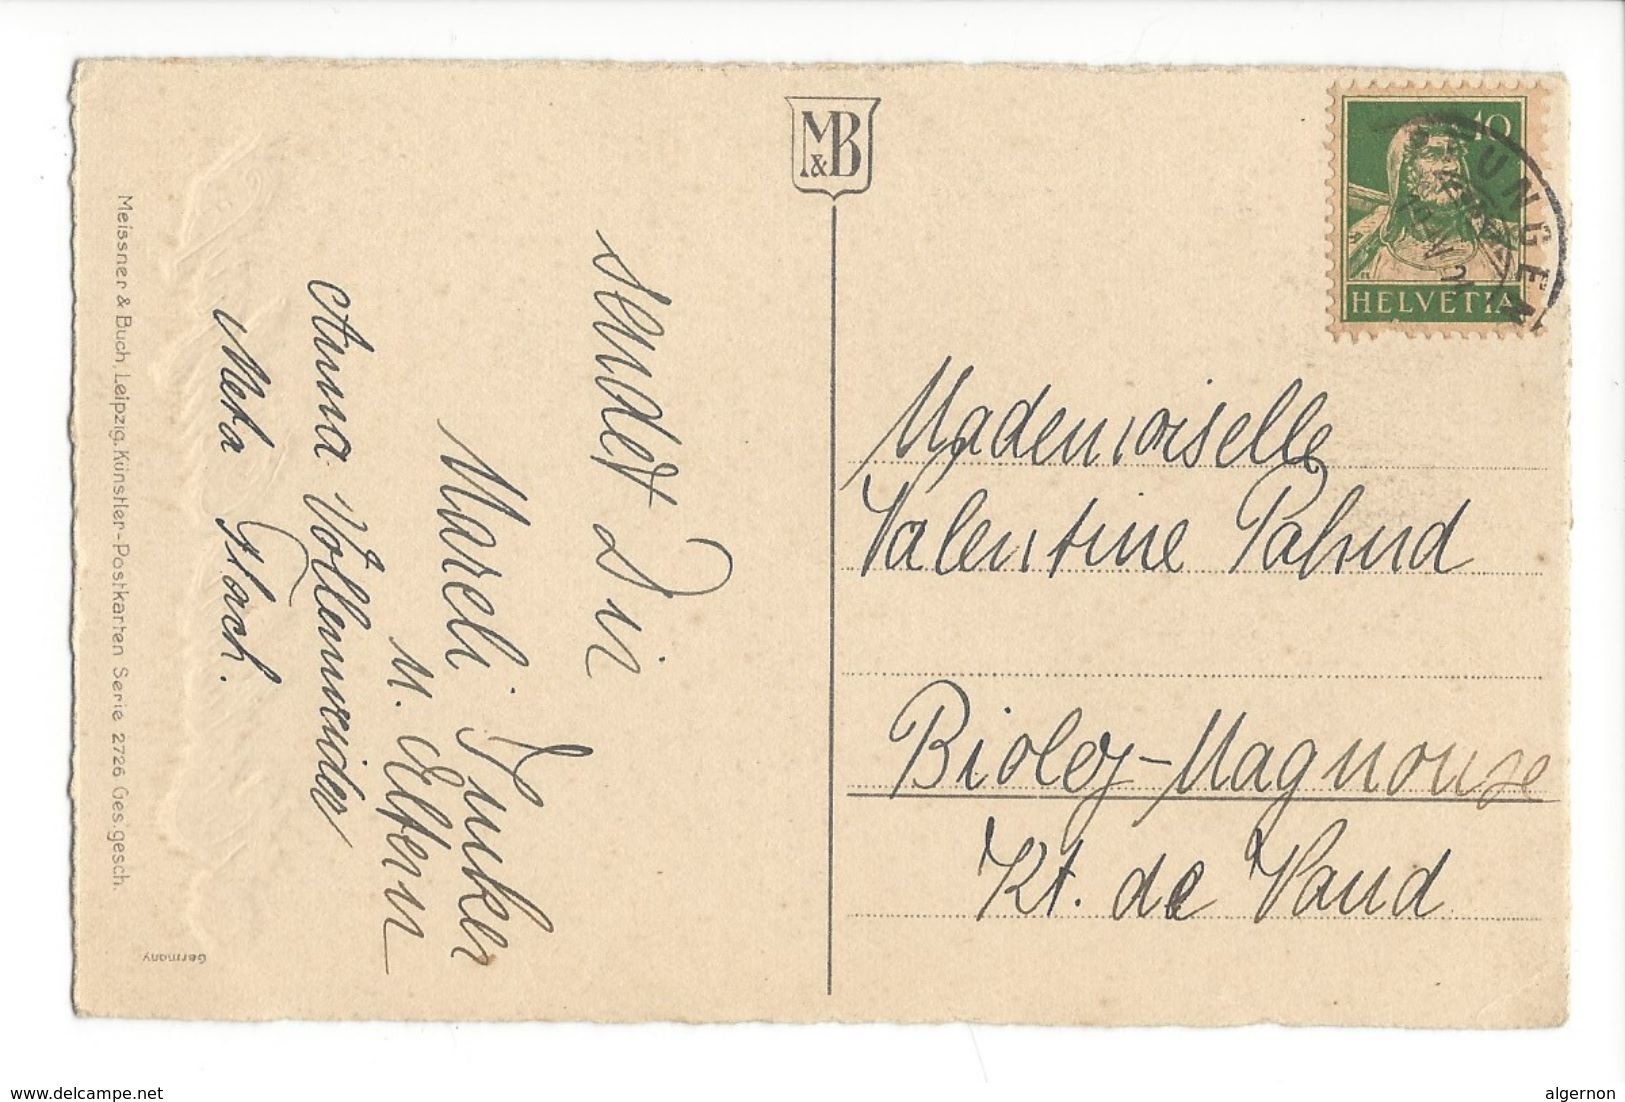 M&B
10
HELVETIA
sendet Dir
Mareli Junker
u. Eltern
Anna Vollenweider
Meta Flach.
Mademoiselle
Valentine Pahud
Bioley-Magnouse
Kt. de Vaud
Meissner & Buch, Leipzig. Künstler-Postkarten Serie 2726 Ges. gesch.
Germany
www.delcampe.net
algernon